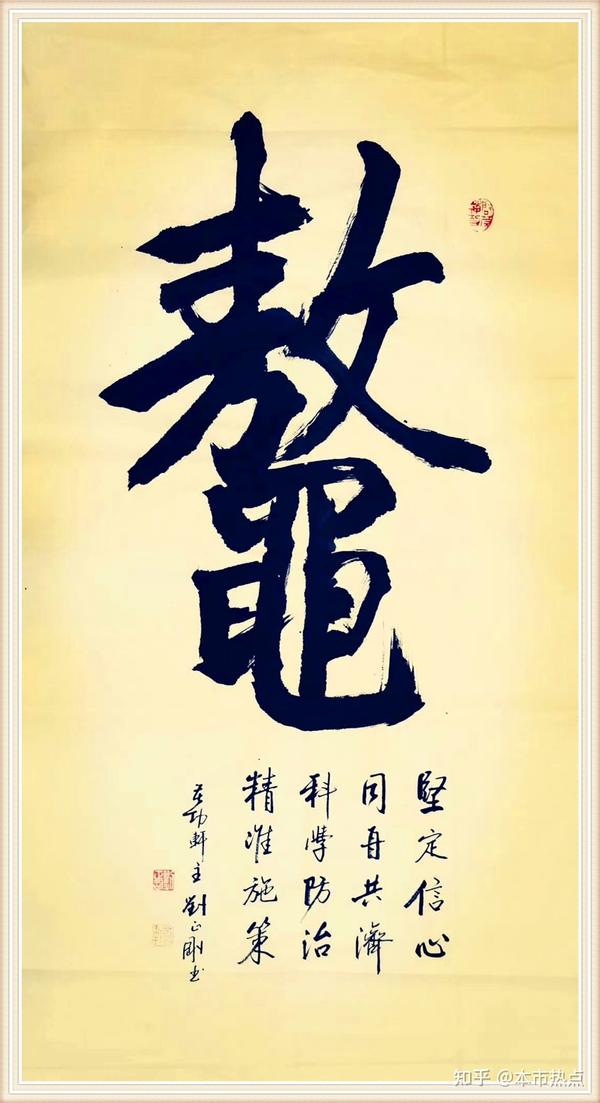 鼇
堅定信心
同舟共濟
科學防治
精准施策
功軒主劉正剛书
知乎 @本市热点